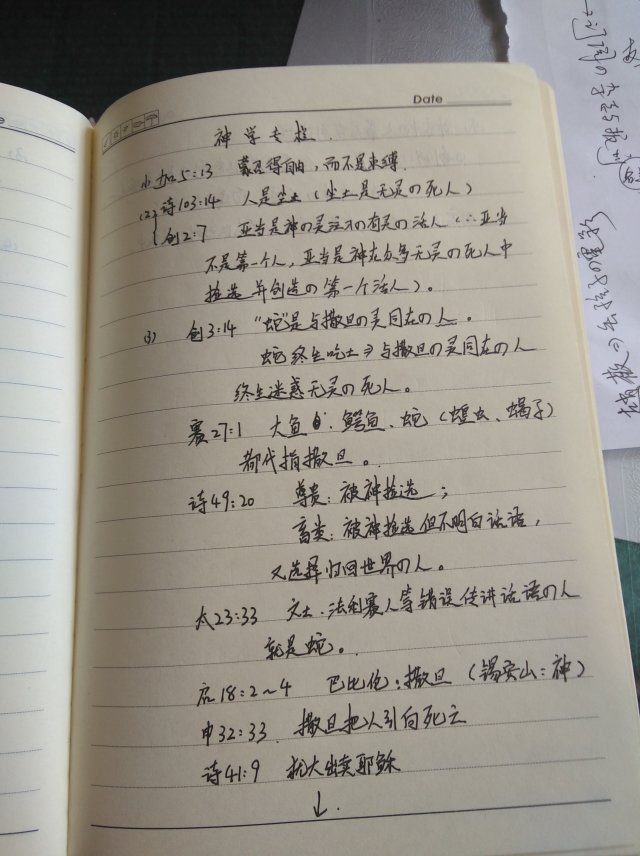 Date
神学专栏.
(1) 加5:13 蒙召得自由，而不是束缚.
(2) 诗103:14 人是尘土（尘土是无灵の死人）
创2:7 亚当是神の灵注入の有灵の活人（∴亚当
不是第一个人，亚当是神在众多无灵の死人中
拣选并创造の第一个活人）。
(3) 创3:14 “蛇”是与撒旦の灵同在の人。
蛇终生吃土⇒与撒旦の灵同在の人
终生迷惑无灵の死人。
赛27:1 大鱼、鳄鱼、蛇（蝗虫、蝎子）
都代指撒旦。
诗49:20 尊贵：被神拣选；
畜类：被神拣选但不明白话语，
又选择归回世界の人。
太23:33 文士、法利赛人等错误传讲话语の人
就是蛇。
启18:2~4 巴比伦：撒旦（锡安山：神）
申32:33 撒旦把人引向死亡
诗41:9 犹大出卖耶稣
↓.